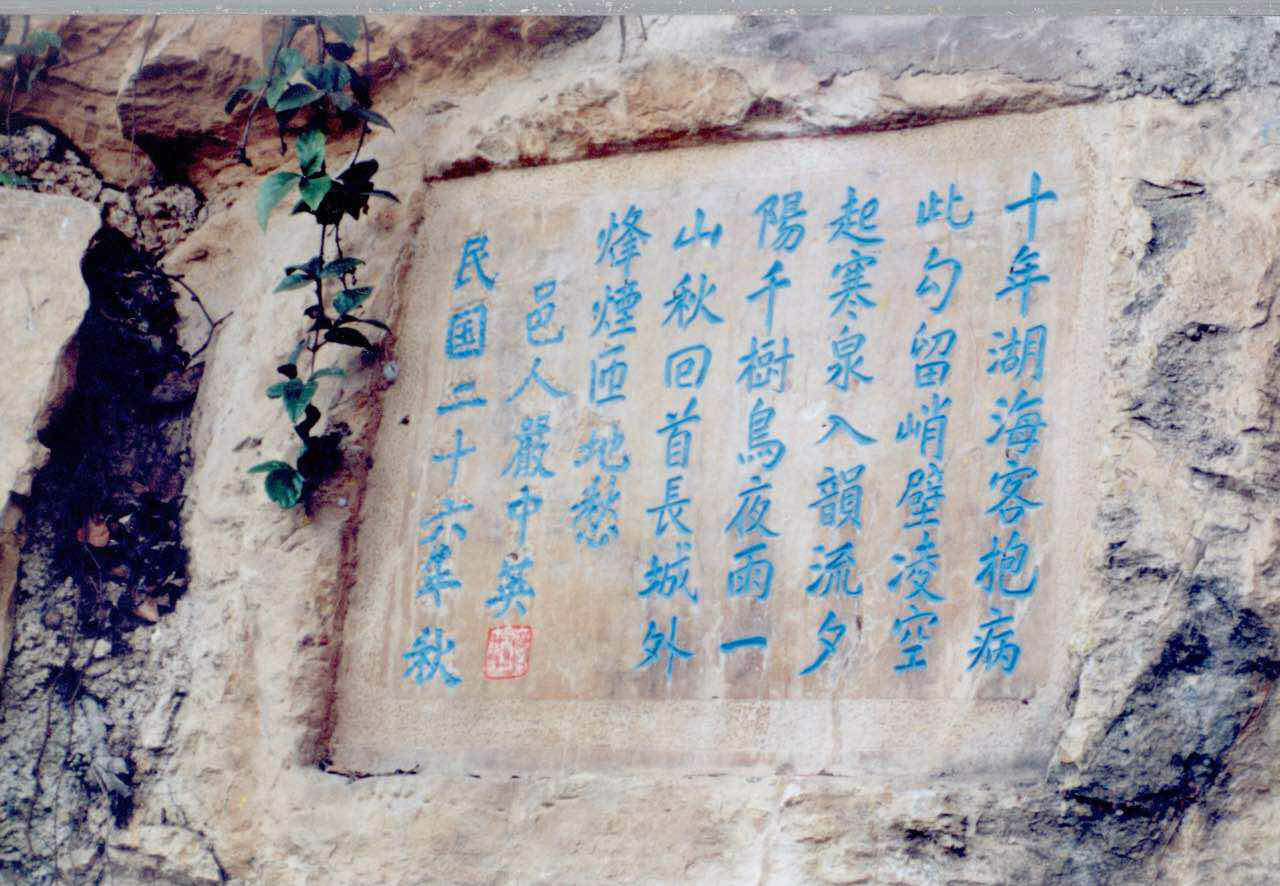 十年湖海客抱病
此勾留峭壁凌空
起寒泉入韻流夕
陽千樹鳥夜雨一
山秋回首長城外
烽煙匝地愁
邑人嚴中英
民国二十六年秋